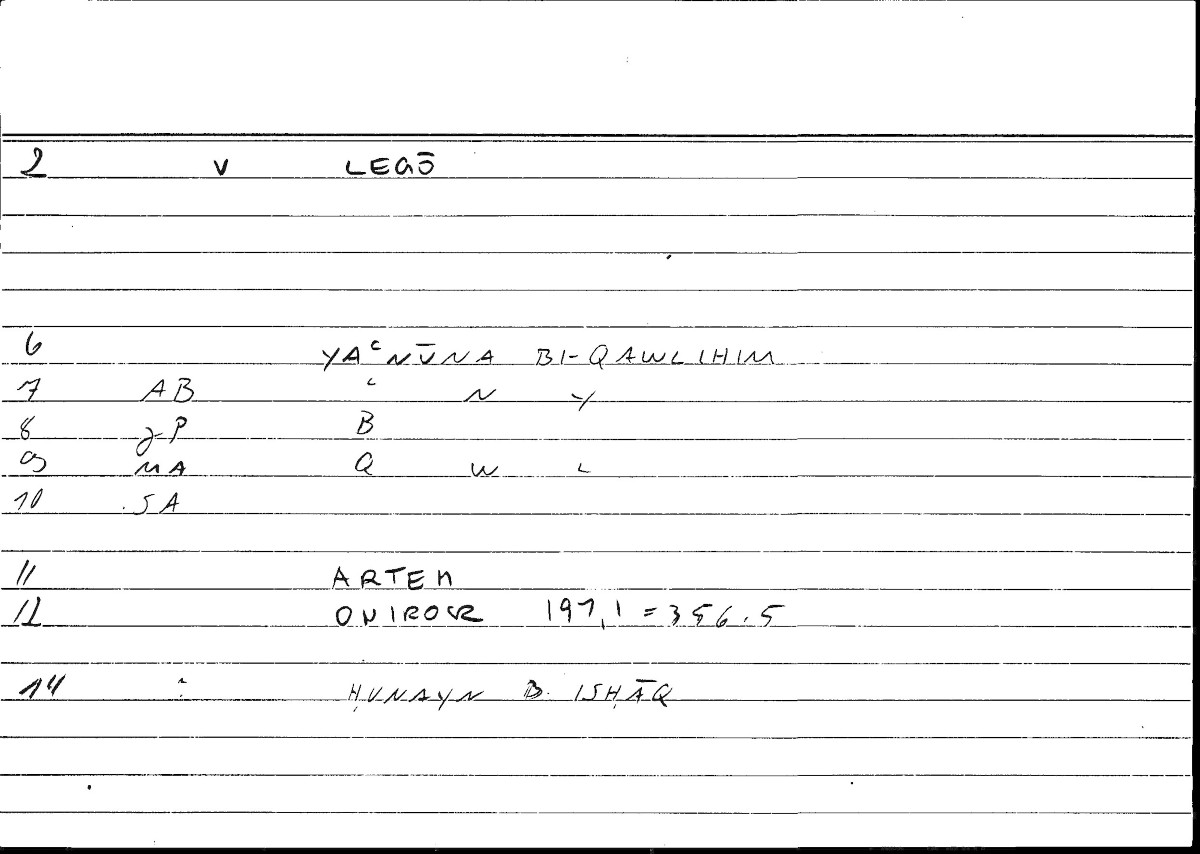 2 V LEGŌ
6 YAʿNŪNA BI-QAWLIHIM
7 AB ʿ N Y
8 gP B
9 MA Q W L
10 SA
11 ARTEM
12 ONIROCR 197,1 = 356.5
14 : ḤUNAYN B. ISḤĀQ